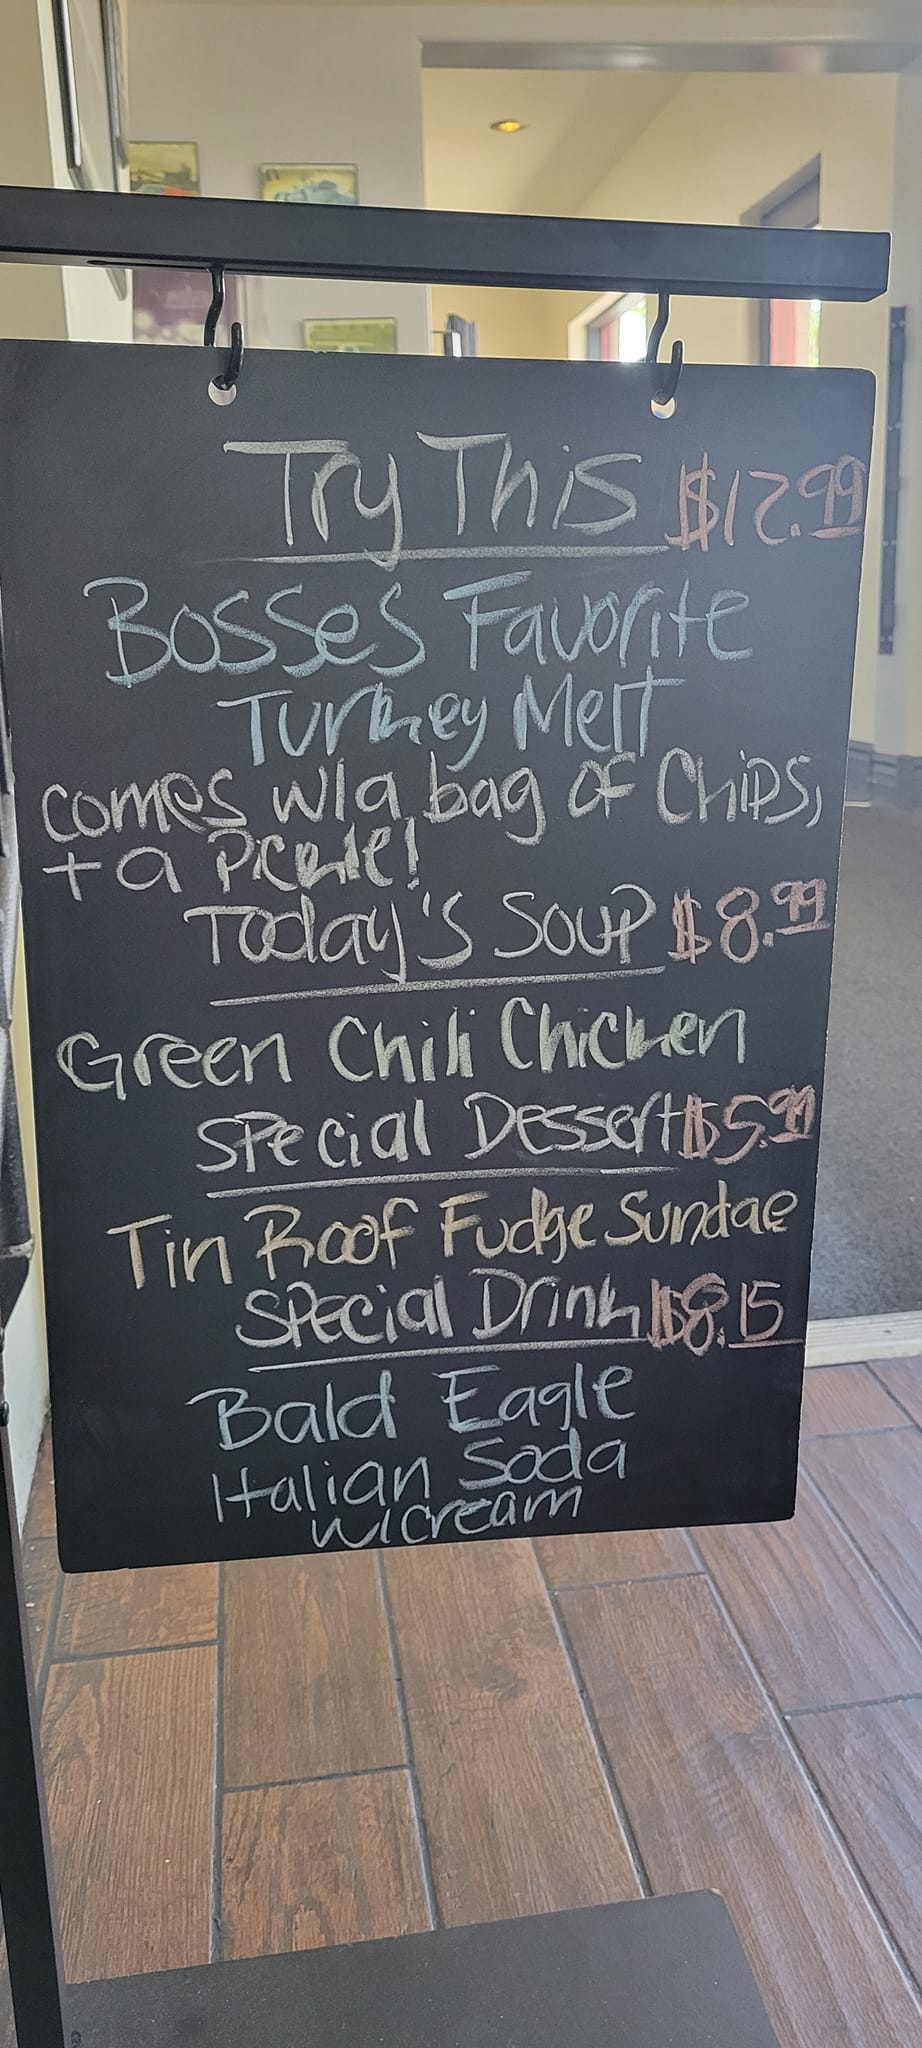 Try This $12.99
Bosses Favorite
Turkey Melt
comes w/a bag of Chips,
+ a Pickle!
Today's Soup $8.99
Green Chili Chicken
Special Dessert $5.99
Tin Roof Fudge Sundae
Special Drink $8.15
Bald Eagle
Italian Soda
w/cream